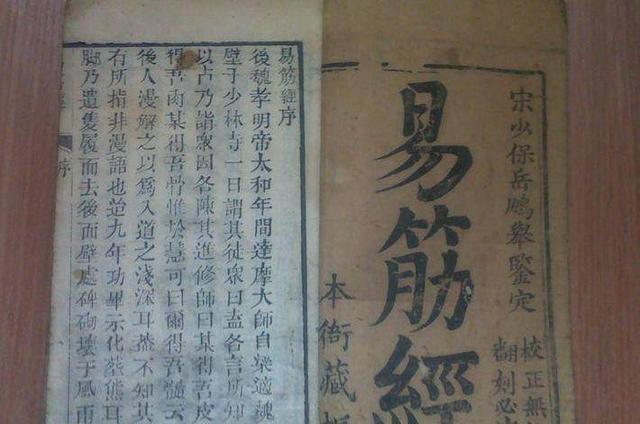 宋少保岳鵬舉鑒定
校正無
翻刻必
易筋經
本衙藏
易筋經序
後魏孝明帝太和年間達摩大師自梁適魏
壁于少林寺一日謂其徒衆曰盍各言所知
以占乃詣衆因各陳其進修師曰某得吾皮
得吾肉某得吾骨惟於慧可曰爾得吾髓云
後人漫解之以爲入道之淺深耳葢不知其
有所指非漫語也迨九年功畢示化葬熊耳
脚乃遺隻履而去後面壁處碑砌壞于風雨
序